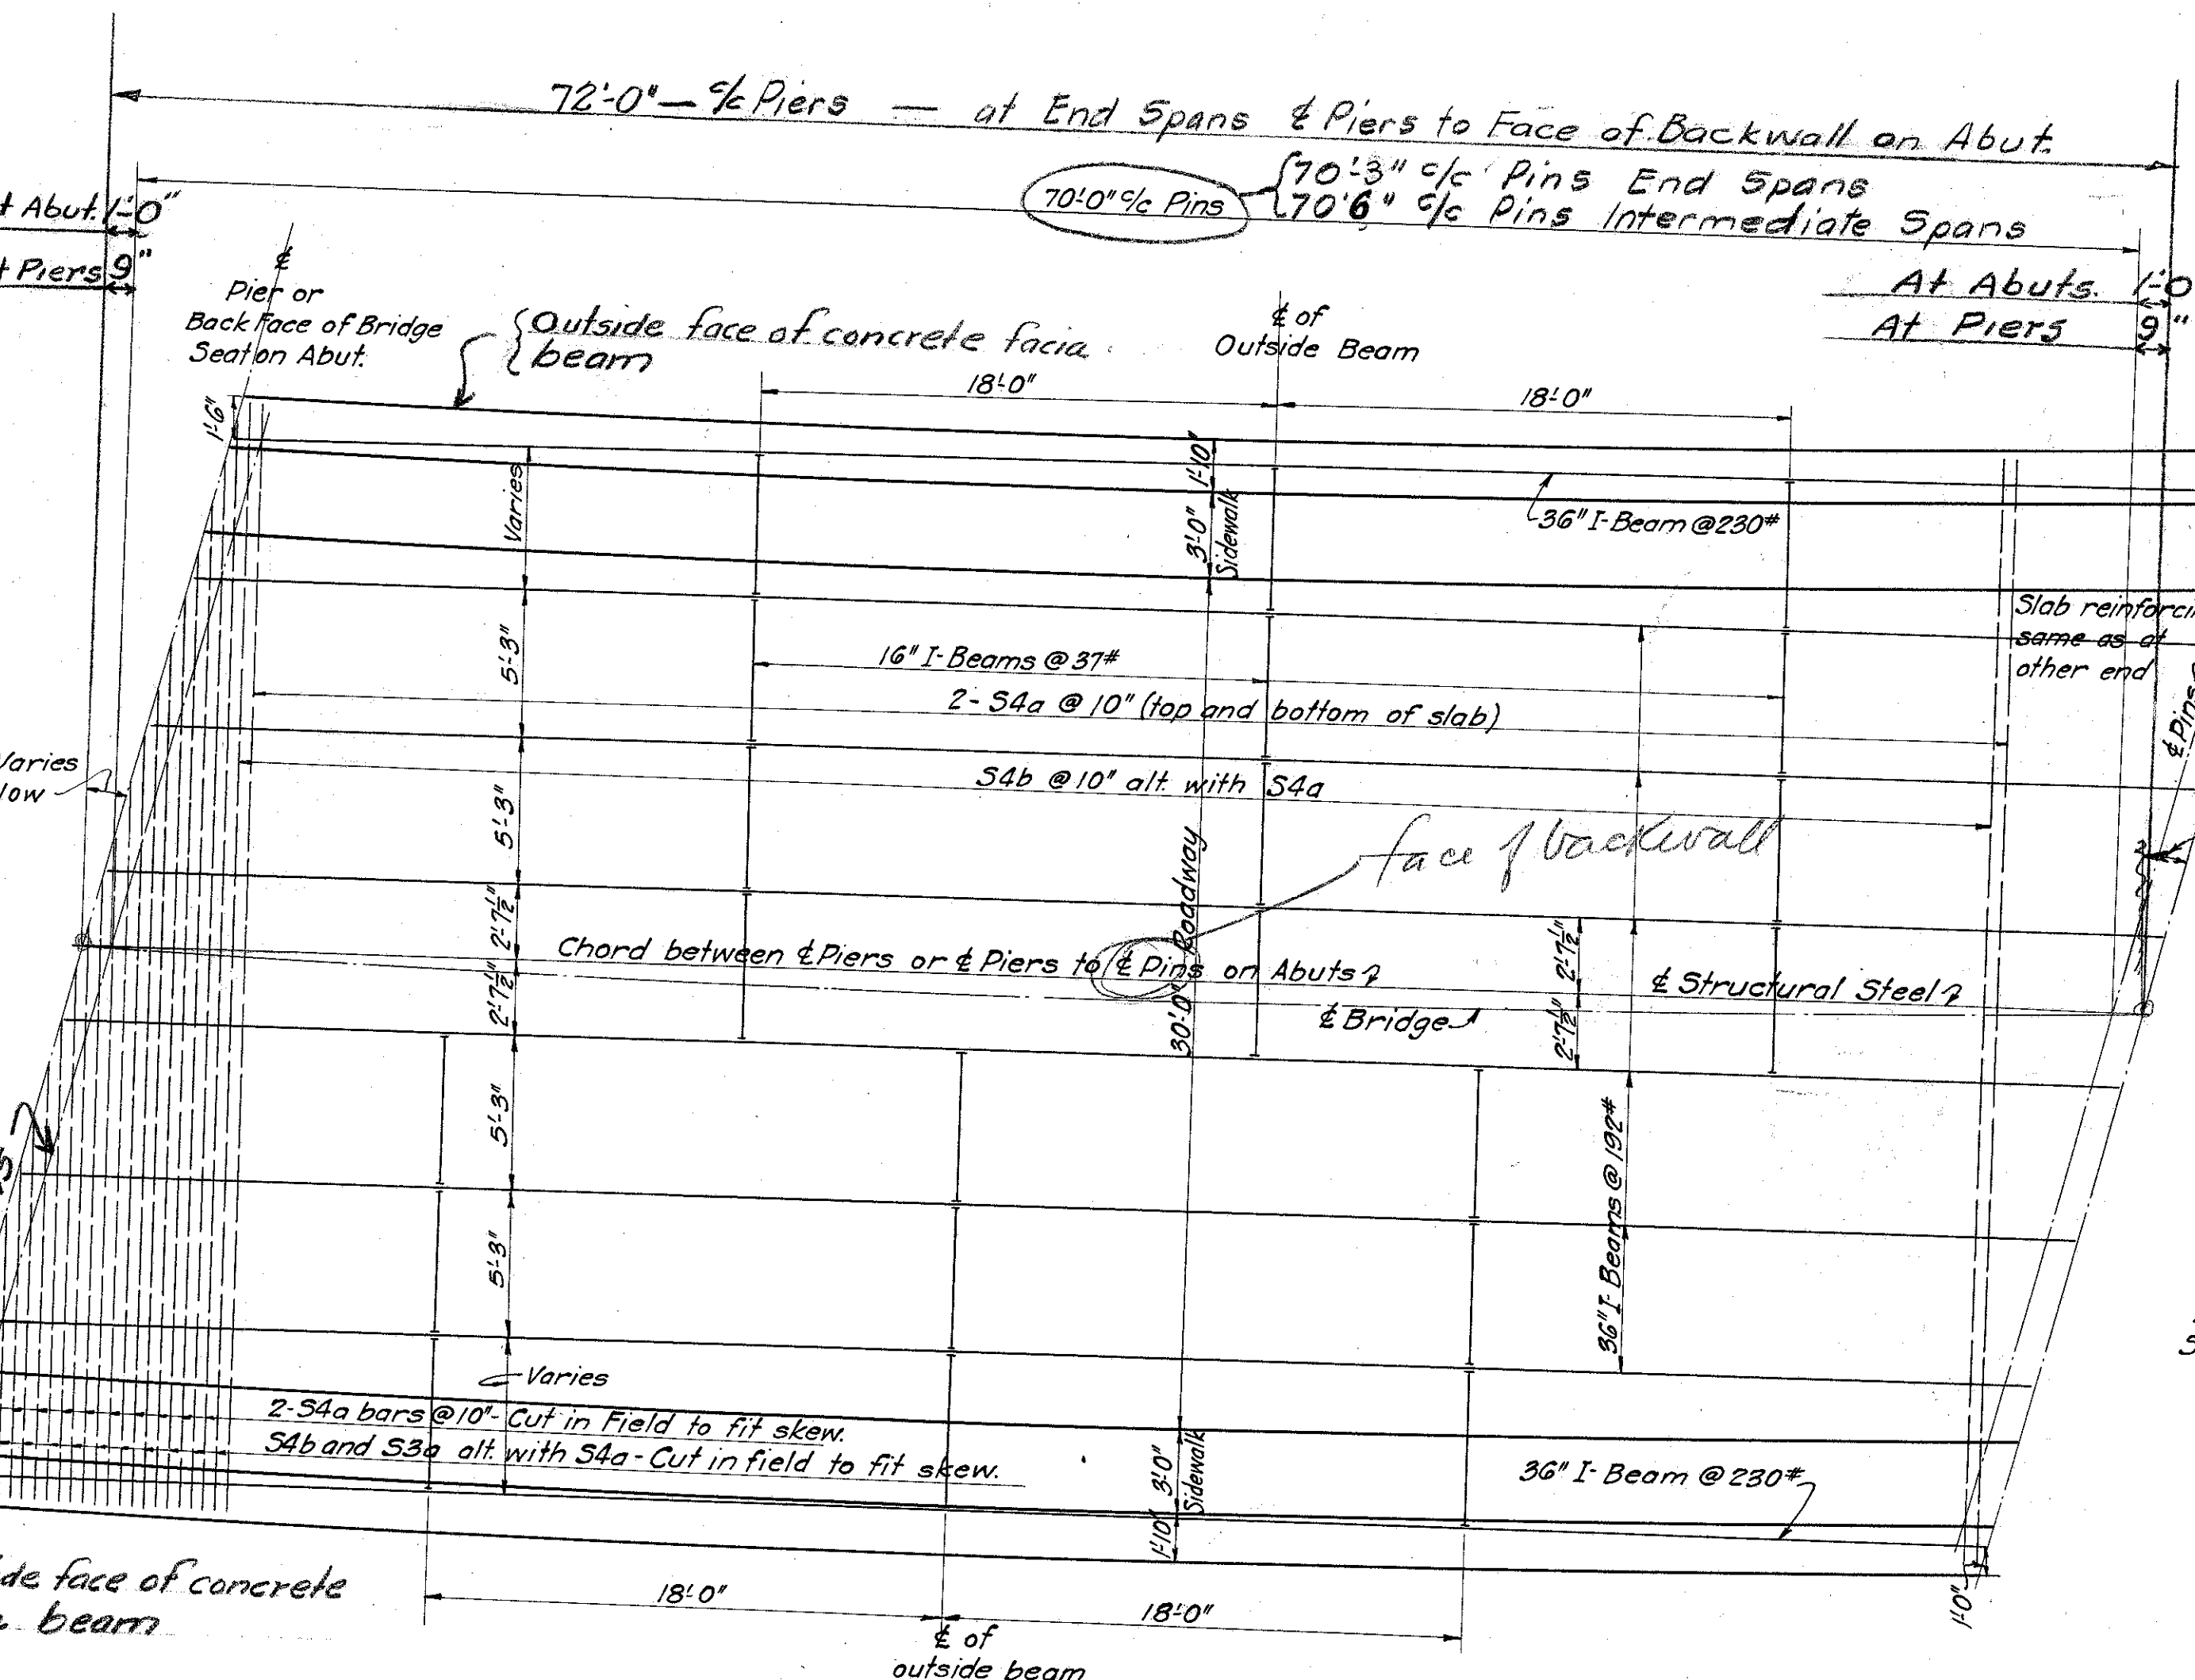 72'-0" — c/c Piers — at End Spans ℄ Piers to Face of Backwall on Abut.
70'-0" c/c Pins
70'-3" c/c Pins End Spans
70'6" c/c Pins Intermediate Spans
t Abut. 1'-0"
t Piers 9"
At Abuts. 1'-0
At Piers 9"
℄
Pier or
Back Face of Bridge
Seat on Abut.
Outside face of concrete facia
beam
℄ of
Outside Beam
18'-0"
18'-0"
1'-6"
Varies
1'-10"
3'-0"
Sidewalk
36" I-Beam @ 230#
Slab reinforcin
same as at
other end
5'-3"
16" I-Beams @ 37#
2- S4a @ 10" (top and bottom of slab)
℄ Pins
Varies
low
S4b @ 10" alt. with S4a
5'-3"
face of backwall
30'-0" Roadway
2'-7½"
2'-7½"
Chord between ℄ Piers or ℄ Piers to ℄ Pins on Abuts
2'-7½"
2'-7½"
℄ Structural Steel
℄ Bridge
5'-3"
5'-3"
36" I-Beams @ 192#
Varies
2-S4a bars @ 10"- Cut in Field to fit skew.
S4b and S3a alt. with S4a - Cut in field to fit skew.
3'-0"
Sidewalk
1'-10"
36" I-Beam @ 230#
1'-0"
de face of concrete
beam
18'-0"
18'-0"
℄ of
outside beam